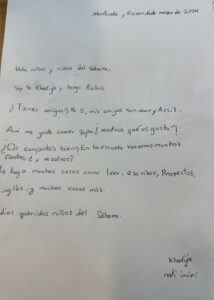 Montcada, 4 de març de 2024
Hola niños y niñas del Sáhara,
Soy la Khadija y tengo 8 años.
¿Tienes amigos? Yo sí, mis amigos son maur y Aziz.
A mi me gusta comer sopa ¿vosotros qué os gusta?
¿Os compartéis bien? En la escuela hacemos muchos
¿y vosotros?
Yo hago muchas cosas como leer, escribir, Proyectos,
inglés y muchas cosas más.
dios queridos niños del Sáhara.
Khadija